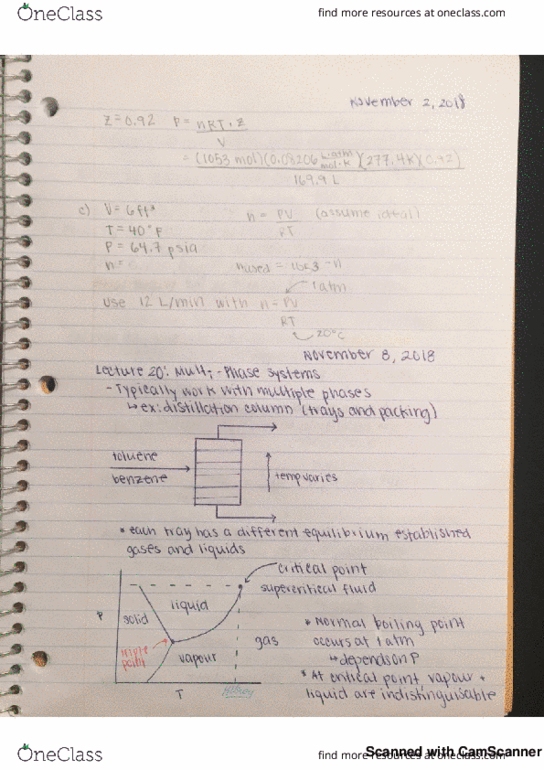 OneClass
find more resources at oneclass.com
November 2, 2018
Z=0.92 P = nRT·Z
V
= (1053 mol)(0.08206 L·atm/mol·K)(277.4K)(0.92)
169.9 L
c) V = 6 ft³
n = PV (assume ideal)
RT
T = 40°F
P = 64.7 psia
n =
nused = 1053 - n
1 atm
use 12 L/min with n = PV
RT
20°C
November 8, 2018
Lecture 20: Multi-Phase Systems
- Typically work with multiple phases
↳ ex: distillation column (trays and packing)
toluene
benzene
temp varies
* each tray has a different equilibrium established
gases and liquids
critical point
supercritical fluid
P
solid
liquid
gas
triple point
vapour
T
* Normal boiling point
occurs at 1 atm
↳ depends on P
* At critical point, vapour +
liquid are indistinguisable
OneClass
find more resources at oneclass.com
Scanned with CamScanner